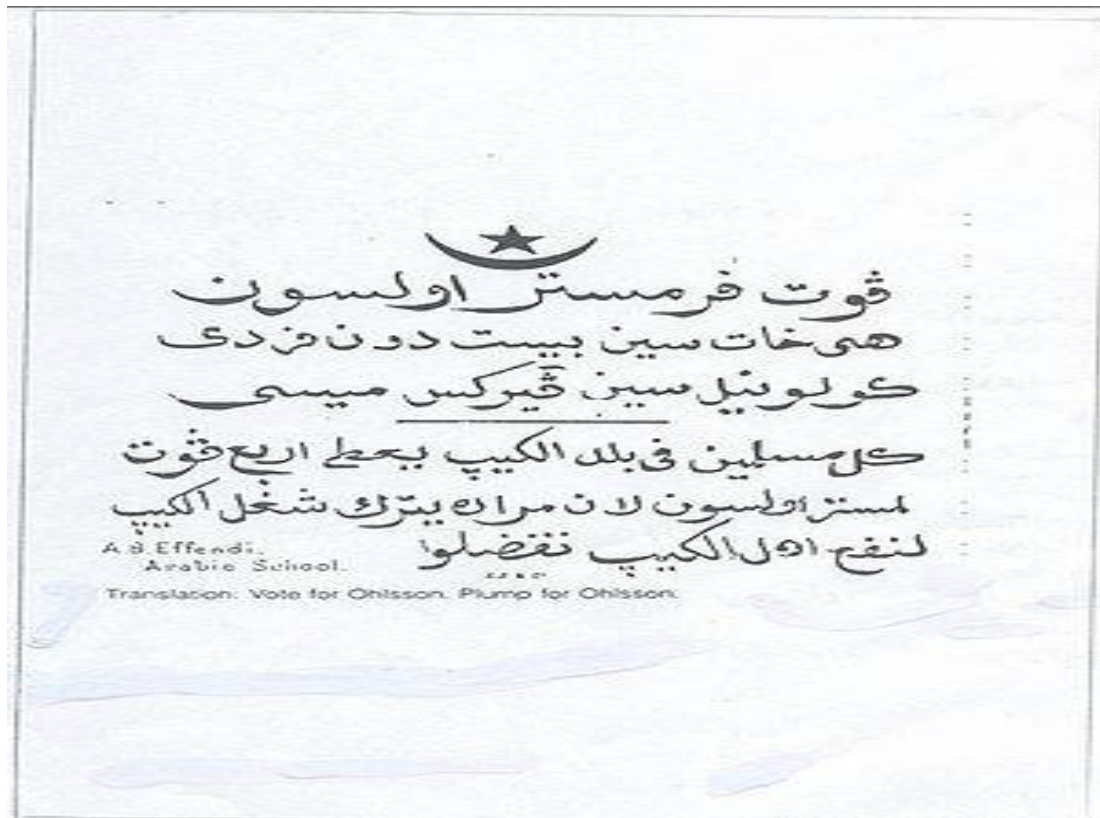 ڤوت فر مستر اولسون
هى خات سين بيست دون فر دى
كولونيل سين ڤيركس ميسى
كل مسلمين فى بلد الكيپ يعطى اربع ڤوت
لمستر اولسون لان مراده يترك شغل الكيپ
لنفع اهل الكيپ تفضلوا
A. B. Effendi.
Arabic School.
Translation: Vote for Ohlsson. Plump for Ohlsson.